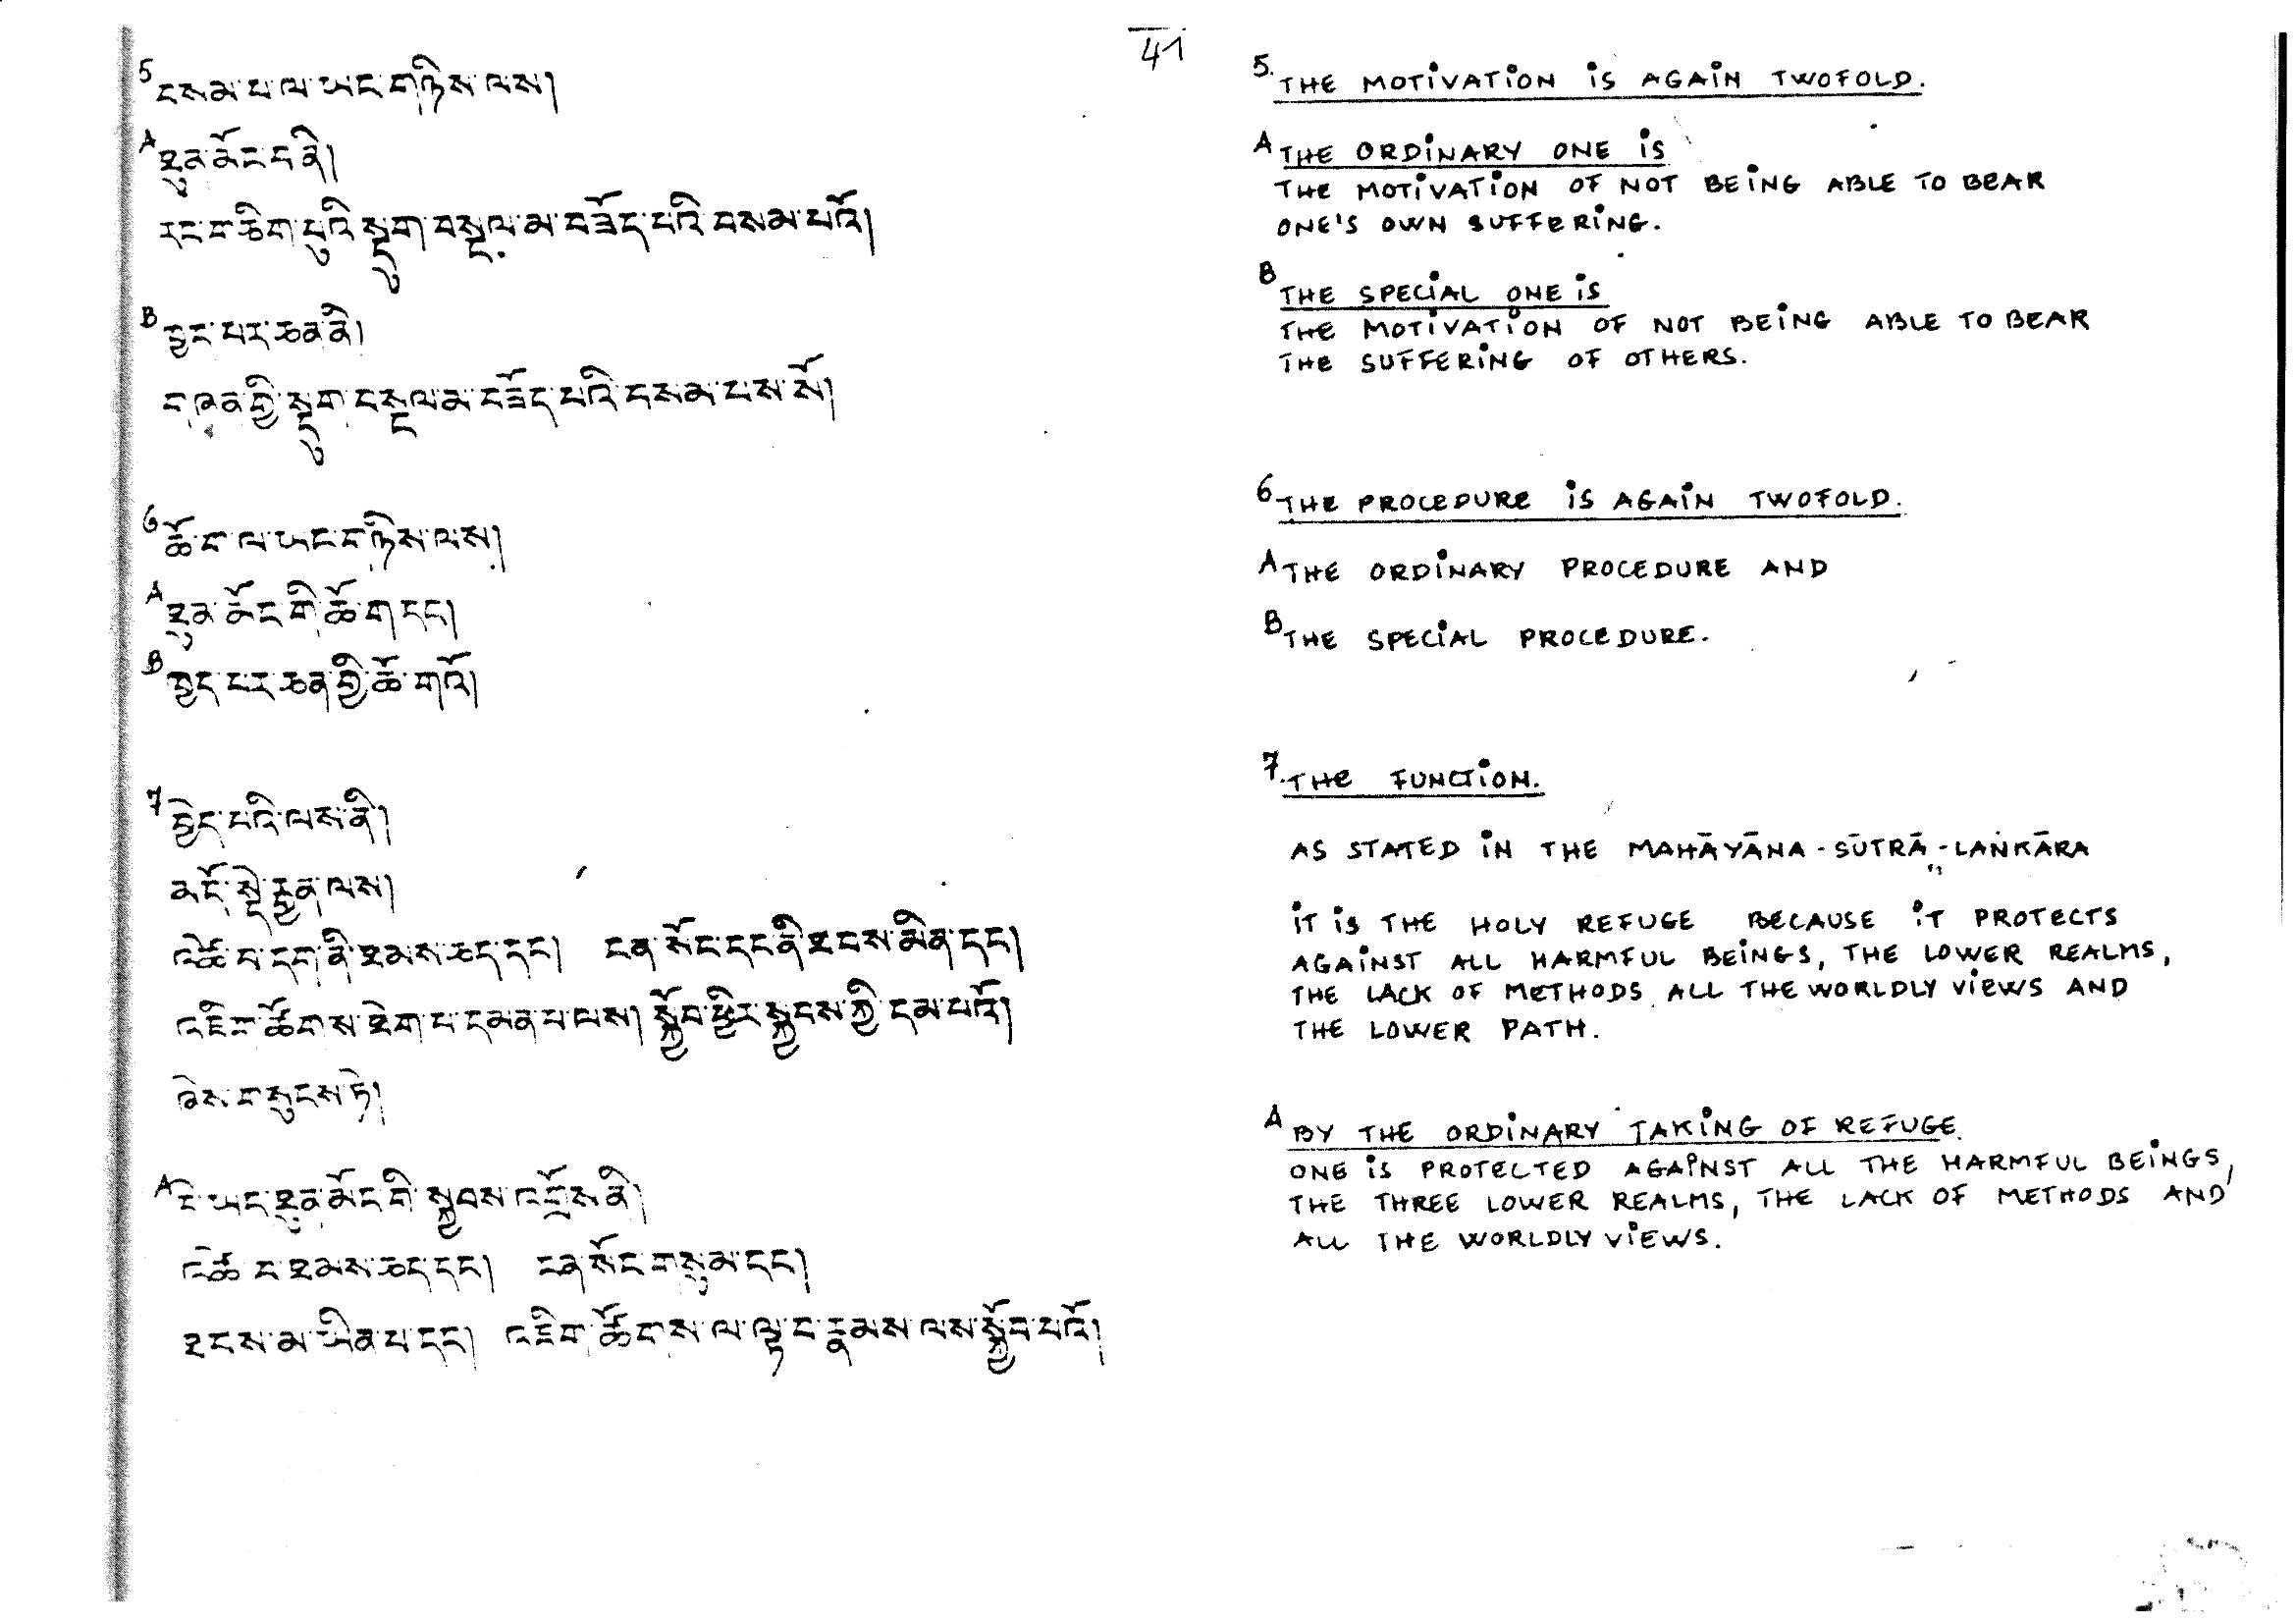 41
5 བསམ་པ་ལ་ཡང་གཉིས་ལས།
A ཐུན་མོང་བ་ནི།
རང་གཅིག་པུའི་སྡུག་བསྔལ་མ་བཟོད་པའི་བསམ་པའོ།
B ཁྱད་པར་ཅན་ནི།
གཞན་གྱི་སྡུག་བསྔལ་མ་བཟོད་པའི་བསམ་པས་སོ།
6 ཆོ་ག་ལ་ཡང་གཉིས་ལས།
A ཐུན་མོང་གི་ཆོ་ག་དང་།
B ཁྱད་པར་ཅན་གྱི་ཆོ་གའོ།
7 བྱེད་པའི་ལས་ནི།
མདོ་སྡེ་རྒྱན་ལས།
འཚེ་བ་དག་ནི་ཐམས་ཅད་དང་། ངན་སོང་དང་ནི་ཐབས་མིན་དང་།
འཇིག་ཚོགས་ཐེག་པ་དམན་པ་ལས། སྐྱོབ་ཕྱིར་སྐྱབས་ཀྱི་དམ་པའོ།
ཞེས་གསུངས་ཏེ།
A དེ་ཡང་ཐུན་མོང་གི་སྐྱབས་འགྲོས་ནི།
འཚེ་བ་ཐམས་ཅད་དང་། ངན་སོང་གསུམ་དང་།
ཐབས་མ་ཡིན་པ་དང་། འཇིག་ཚོགས་ལ་ལྟ་བ་རྣམས་ལས་སྐྱོབ་པའོ།
5. THE MOTIVATION IS AGAIN TWOFOLD.
A THE ORDINARY ONE IS
THE MOTIVATION OF NOT BEING ABLE TO BEAR
ONE'S OWN SUFFERING.
B THE SPECIAL ONE IS
THE MOTIVATION OF NOT BEING ABLE TO BEAR
THE SUFFERING OF OTHERS.
6 THE PROCEDURE IS AGAIN TWOFOLD.
A THE ORDINARY PROCEDURE AND
B THE SPECIAL PROCEDURE.
7. THE FUNCTION.
AS STATED IN THE MAHĀYĀNA-SŪTRĀ-LAṄKĀRA
IT IS THE HOLY REFUGE BECAUSE IT PROTECTS
AGAINST ALL HARMFUL BEINGS, THE LOWER REALMS,
THE LACK OF METHODS, ALL THE WORLDLY VIEWS AND
THE LOWER PATH.
A BY THE ORDINARY TAKING OF REFUGE
ONE IS PROTECTED AGAINST ALL THE HARMFUL BEINGS,
THE THREE LOWER REALMS, THE LACK OF METHODS AND
ALL THE WORLDLY VIEWS.